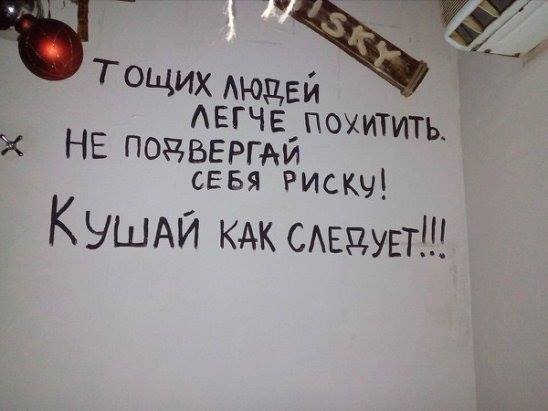 ISKY
Тощих людей
легче похитить.
Не подвергай
себя риску!
Кушай как следует!!!